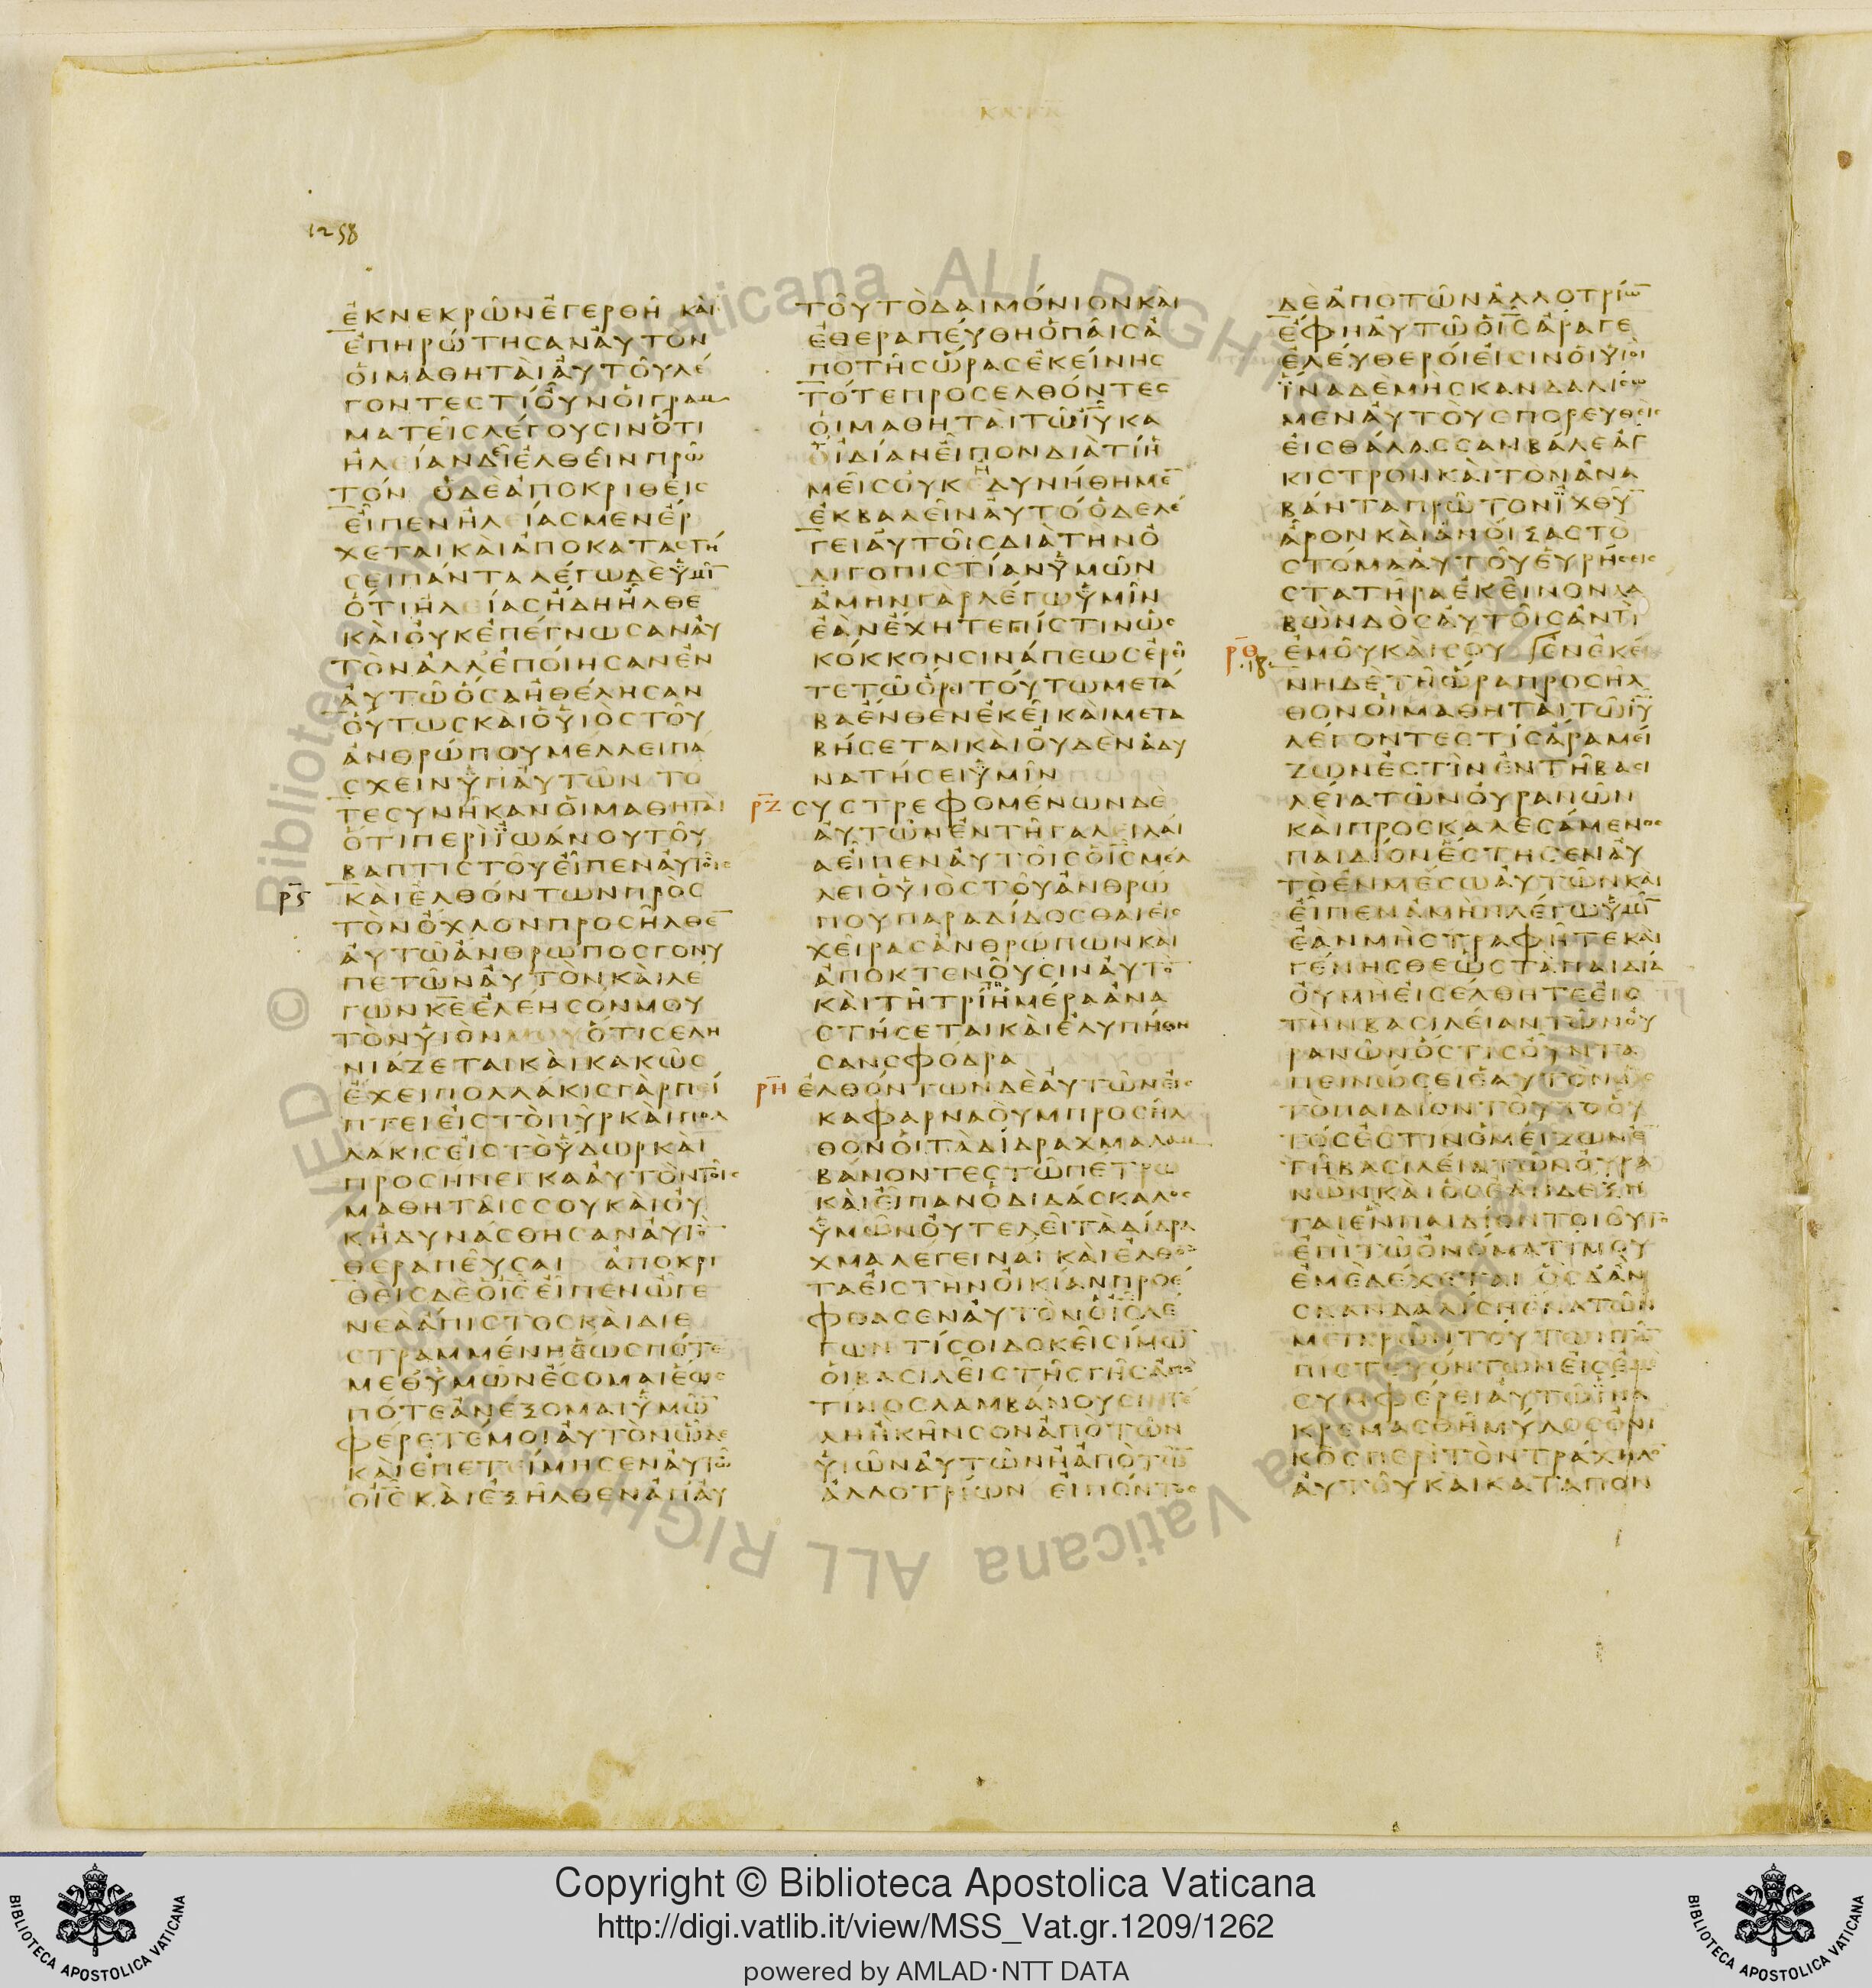 ΚΑΤΑ
1258
ἐκνεκρῶνἐγερθῆ καὶ
ἐπηρώτησανἀυτὸν
ὁιμαθητὰιἀυτοῦλέ
γοντεστίὀῦνὁιγραμ
ματεῖςλέγουσινὅτι
ἡλείανδεῖἐλθεῖνπρῶ
τόν ὁδὲἀποκριθεὶς
εἶπενἠλείασμενἔρ
χεταικὰιἀποκαταστή
σειπάνταλέγωδὲὑμῖ̅
ὅτιἠλείασἤδηἦλθε
κὰιὀυκἐπέγνωσανἀυ
τὸνἀλλἐποίησανἐν
ἀυτῶὅσαἠθέλησαν
ὅυτωσκὰιὁὑιὸστοῦ
ἀνθρώπουμέλλειπά
σχεινὑπἀυτῶν το
τεσυνῆκανὁιμαθητὰι
ὅτιπερὶϊωάνουτοῦ
βαπτιστοῦεἶπενἀυτοῖς
ρ̅ϛ κὰιἐλθόντωνπρὸς
τὸνὄχλονπροσῆλθε̅
ἀυτῶἄνθρωποσγονυ
πετῶνἀυτὸνκὰιλέ
γωνκ̅ε̅ἐλέησόνμου
τὸνὑιὸνμουὅτισελη
νιάζεταικὰικακῶς
ἔχειπολλάκισγὰρπεί
πτειἐιςτὸπῦρκὰιπολ
λάκισἐιςτὸὕδωρκὰι
προσήνεγκαἀυτὸντοῖς
μαθηταῖςσουκὰιὀυ
κἠδυνάσθησανἀυτὸ̅
θεραπεῦσαι ἀποκρι
θεὶςδὲὁι̅σ̅εἶπενὦγε
νεὰἄπιστοσκὰιδιε
στραμμένηἕωσπότε
μεθὑμῶνἔσομαιἕως
πότεἀνέξομαιὑμῶ̅
φέρετέμοιἀυτὸνὧδε
κὰιἐπετείμησενἀυτῶ
ὁι̅σ̅κὰιἐξῆλθενἀπἀυ
τοῦτὸδαιμόνιονκὰι
ἐθεραπεύθηὁπαῖςἀ
πὸτῆσὥρασἐκείνης
τότεπροσελθόντες
ὁιμαθητὰιτῶι̅υ̅κα
τἰδίανεἶπονδιὰτίἡ
μεῖςὀυκἠδυνήθημε̅
ἐκβαλεῖνἀυτό ὁδελέ
γειἀυτοῖςδιὰτὴνὀ
λιγοπιστίανὑμῶν
ἀμὴνγὰρλέγωὑμῖν
ἐὰνἔχητεπίστινὡς
κόκκονσινάπεωςἐρεῖ
τετῶὄριτούτωμετά
βαἔνθενἐκεῖκὰιμετα
βήσεταικὰιὀυδὲνἀδυ
νατήσειὑμῖν
ρ̅ζ συστρεφομένωνδὲ
ἀυτῶνἐντῆγαλειλαί
αεἶπενἀυτοῖςὁι̅σ̅μέλ
λειὁὑιὸστοῦἀνθρώ
πουπαραδίδοσθαιἐις
χεῖρασἀνθρώπωνκὰι
ἀποκτενοῦσινἀυτὸ̅
κὰιτῆτρίτηἡμέραἀνα
στήσεταικὰιἐλυπήθη
σανσφόδρα
ρ̅η ἐλθόντωνδὲἀυτῶνἐις
καφαρναοὺμπροσῆλ
θονὁιτὰδίδραχμαλαμ
βάνοντεςτῶπέτρω
κὰιεἶπανὁδιδάσκαλος
ὑμῶνὀυτελεῖτὰδίδρα
χμαλέγειναὶκὰιἐλθό̅
ταἐιςτὴνὀικίανπροέ
φθασενἀυτὸνὁι̅σ̅λέ
γωντίσοιδοκεῖσίμω̅
ὁιβασιλεῖςτῆςγῆςἀπὸ
τίνοσλαμβάνουσιντέ
ληἢκῆνσονἀπὸτῶν
ὑιῶνἀυτῶνἢἀπὸτῶ̅
ἀλλοτρίων ἐιπόντος
δὲἀπὸτῶνἀλλοτρίω̅
ἔφηἀυτῶὁι̅σ̅ἄραγε
ἐλεύθερόιἐισινὁιὑιοί
ἵναδὲμὴσκανδαλίσω
μενἀυτοὺςπορευθεὶς
ἐιςθάλασσανβάλεἄγ
κιστρονκὰιτὸνἀνα
βάνταπρῶτονἰχθὺ̅
ἆρονκὰιἀνοίξαςτὸ
στόμαἀυτοῦἑυρήσεις
στατῆραἐκεῖνονλα
βὼνδὸςἀυτοῖςἀντὶ
ρ̅θ ἐμοῦκὰισοῦ ἐνἐκεί
.18. νηδὲτῆὥραπροσῆλ
θονὁιμαθητὰιτῶι̅υ̅
λέγοντεςτίςἄραμεί
ζωνἐστὶνἐντῆβασι
λείατῶνὀυρανῶν
κὰιπροσκαλεσάμενος
παιδίονἔστησενἀυ
τὸἐνμέσωἀυτῶνκὰι
εἶπενἀμὴνλέγωὑμῖ̅
ἐὰνμὴστραφῆτεκὰι
γένησθεὡςτὰπαιδία
ὀυμὴἐισέλθητεἐις
τὴνβασιλείαντῶνὀυ
ρανῶνὅστιςὀῦντα
πεινώσειἑαυτὸνὡς
τὸπαιδίοντοῦτοὅυ
τόςἐστινὁμείζωνἐ̅
τῆβασιλείατῶνὀυρα
νῶνκὰιὃςἐὰνδέξη
ταιἓνπαιδίοντοιοῦτο
ἐπὶτῶὀνόματίμου
ἐμὲδέχεται ὃςδἂν
σκανδαλίσηἕνατῶν
μεικρῶντούτωντῶ̅
πιστευόντωνἐιςἐμὲ
συμφέρειἀυτῶἵνα
κρεμασθῆμύλοσὀνι
κὸςπερὶτὸντράχηλο̅
ἀυτοῦκὰικαταπον
Copyright © Biblioteca Apostolica Vaticana
http://digi.vatlib.it/view/MSS_Vat.gr.1209/1262
powered by AMLAD·NTT DATA
BIBLIOTECA APOSTOLICA VATICANA
BIBLIOTECA APOSTOLICA VATICANA
© Biblioteca Apostolica Vaticana ALL RIGHTS RESERVED